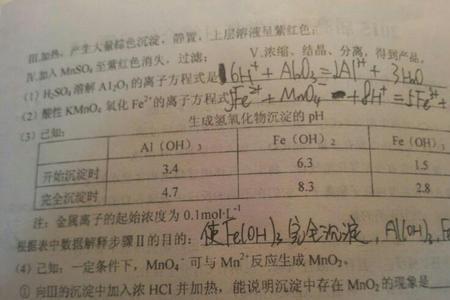 Ⅲ.加热,产生大量棕色沉淀,静置,上层溶液呈紫红色;
Ⅳ.加入MnSO₄至紫红色消失,过滤; Ⅴ.浓缩、结晶、分离,得到产品。
(1) H₂SO₄溶解Al₂O₃的离子方程式是 6H⁺ + Al₂O₃ = 2Al³⁺ + 3H₂O
(2) 酸性KMnO₄氧化Fe²⁺的离子方程式 5Fe²⁺ + MnO₄⁻ + 8H⁺ = 5Fe³⁺ +
(3) 已知:
生成氢氧化物沉淀的pH
Al(OH)₃ Fe(OH)₂ Fe(OH)₃
开始沉淀时 3.4 6.3 1.5
完全沉淀时 4.7 8.3 2.8
注:金属离子的起始浓度为0.1mol·L⁻¹
根据表中数据解释步骤Ⅱ的目的: 使Fe(OH)₃完全沉淀, Al(OH)₃
(4) 己知:一定条件下,MnO₄⁻可与Mn²⁺反应生成MnO₂。
① 向Ⅲ的沉淀中加入浓HCl并加热,能说明沉淀中存在MnO₂的现象是